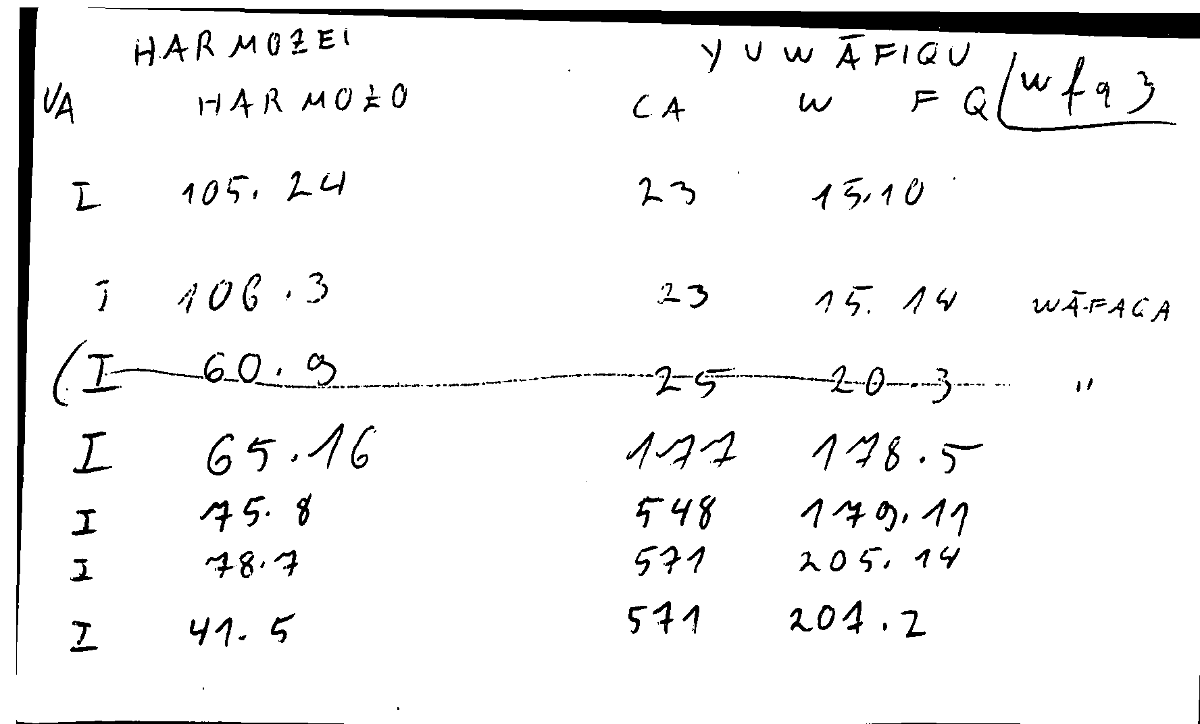 HARMOZEI YUWĀFIQU
VA HARMOZO CA W F Q wfq 3
I 105.24 23 15.10
I 106.3 23 15.14 WĀFAQA
(I 60.9 25 20.3 "
I 65.16 177 178.5
I 75.8 548 179.11
I 78.7 571 205.14
I 41.5 571 207.2